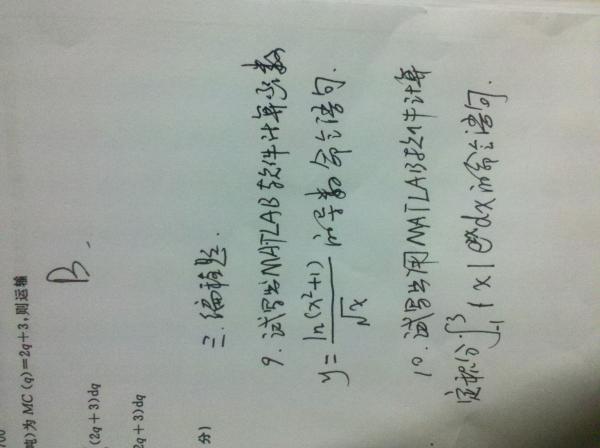 吨)为 MC (q)=2q+3,则运输
(2q+3)dq
2q+3)dq
分)
B.
三.编程题.
9.试写出MATLAB软件计算函数
y= ln(x²+1)/√x 的导数命令语句.
10.试写出用MATLAB软件计算
定积分∫₋₁³ |x|eˣdx的命令语句.